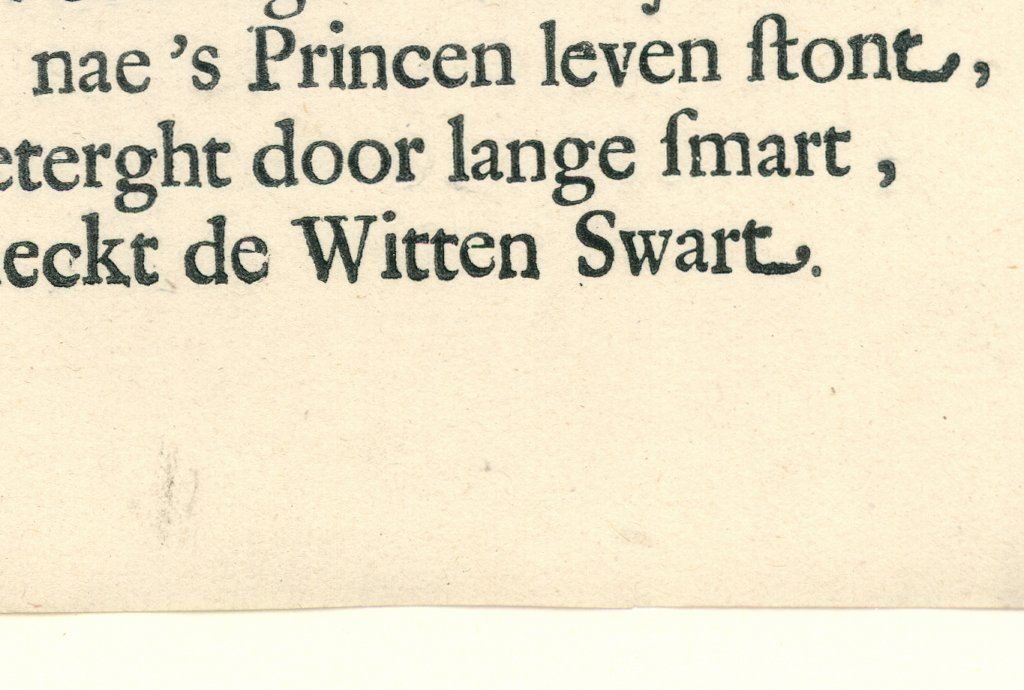 nae 's Princen leven ſtont,
eterght door lange ſmart ,
eckt de Witten Swart.